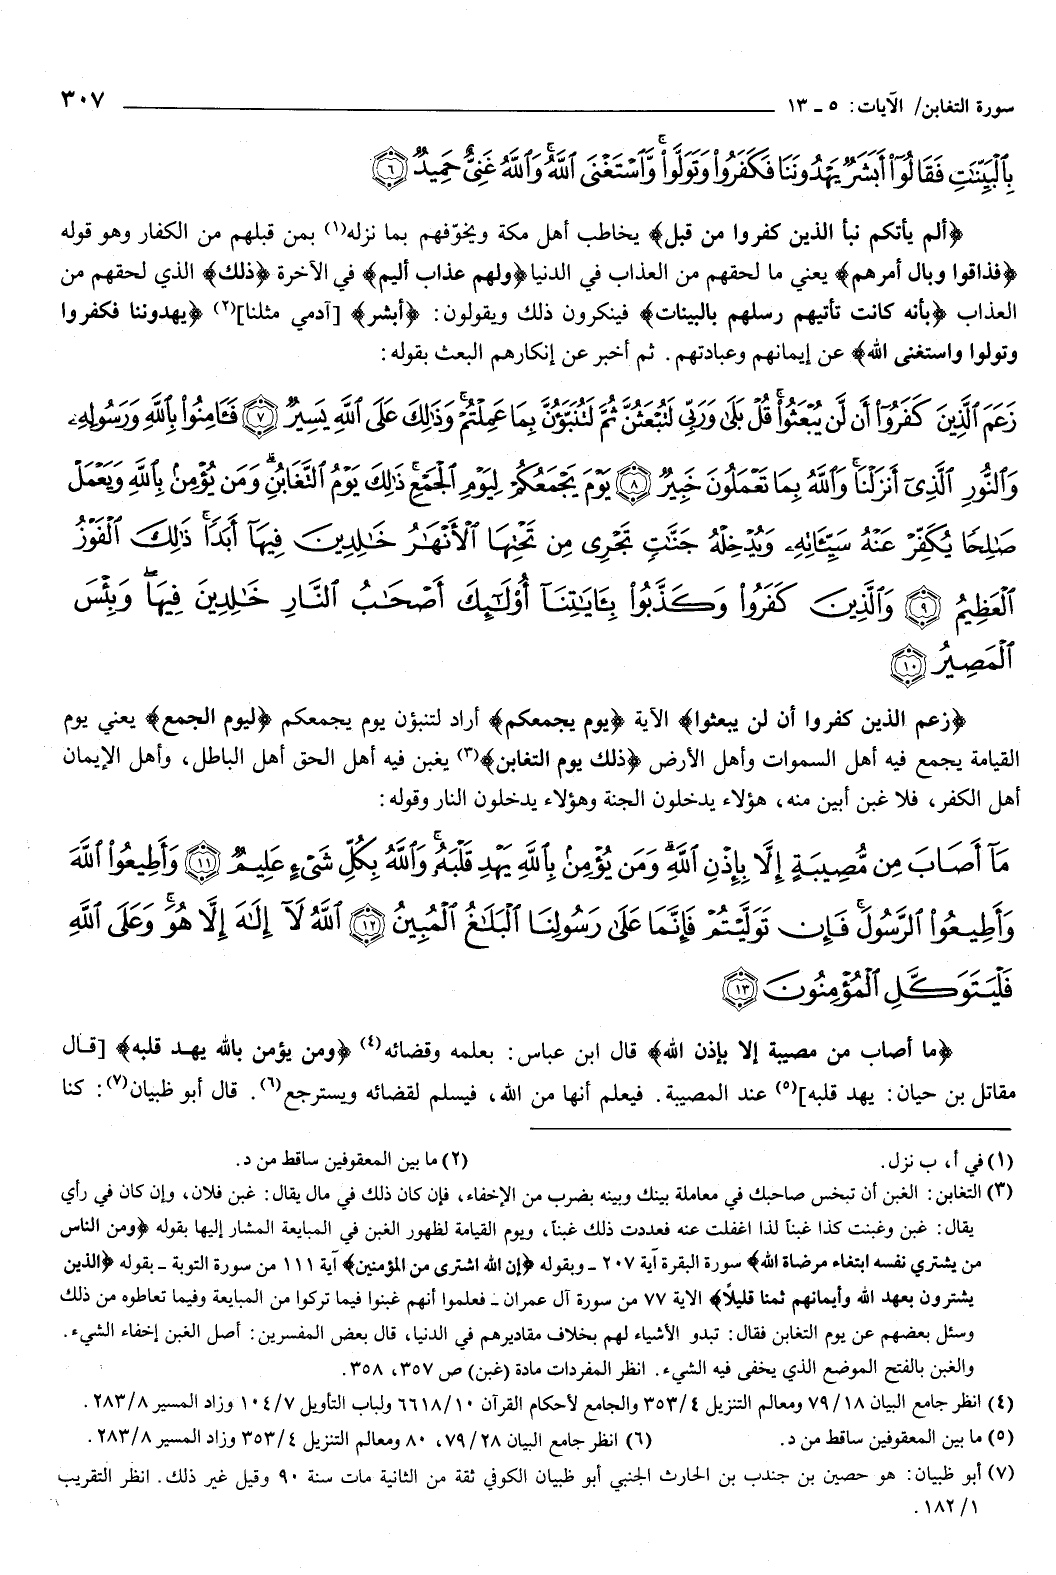 سورة التغابن/ الآيات: ٥ ـ ١٣ ٣٠٧
بِٱلْبَيِّنَٰتِ فَقَالُوٓا۟ أَبَشَرٌ يَهْدُونَنَا فَكَفَرُوا۟ وَتَوَلَّوا۟ ۚ وَّٱسْتَغْنَى ٱللَّهُ ۚ وَٱللَّهُ غَنِىٌّ حَمِيدٌ ٦
﴿ألم يأتكم نبأ الذين كفروا من قبل﴾ يخاطب أهل مكة ويخوّفهم بما نزله(١) بمن قبلهم من الكفار وهو قوله
﴿فذاقوا وبال أمرهم﴾ يعني ما لحقهم من العذاب في الدنيا ﴿ولهم عذاب أليم﴾ في الآخرة ﴿ذلك﴾ الذي لحقهم من
العذاب ﴿بأنه كانت تأتيهم رسلهم بالبينات﴾ فينكرون ذلك ويقولون: ﴿أبشر﴾ [آدمي مثلنا](٢) ﴿يهدوننا فكفروا
وتولوا واستغنى الله﴾ عن إيمانهم وعبادتهم. ثم أخبر عن إنكارهم البعث بقوله:
زَعَمَ ٱلَّذِينَ كَفَرُوٓا۟ أَن لَّن يُبْعَثُوا۟ ۚ قُلْ بَلَىٰ وَرَبِّى لَتُبْعَثُنَّ ثُمَّ لَتُنَبَّؤُنَّ بِمَا عَمِلْتُمْ ۚ وَذَٰلِكَ عَلَى ٱللَّهِ يَسِيرٌ ٧ فَـَٔامِنُوا۟ بِٱللَّهِ وَرَسُولِهِۦ
وَٱلنُّورِ ٱلَّذِىٓ أَنزَلْنَا ۚ وَٱللَّهُ بِمَا تَعْمَلُونَ خَبِيرٌ ٨ يَوْمَ يَجْمَعُكُمْ لِيَوْمِ ٱلْجَمْعِ ۖ ذَٰلِكَ يَوْمُ ٱلتَّغَابُنِ ۗ وَمَن يُؤْمِنۢ بِٱللَّهِ وَيَعْمَلْ
صَٰلِحًا يُكَفِّرْ عَنْهُ سَيِّـَٔاتِهِۦ وَيُدْخِلْهُ جَنَّٰتٍ تَجْرِى مِن تَحْتِهَا ٱلْأَنْهَٰرُ خَٰلِدِينَ فِيهَآ أَبَدًا ۚ ذَٰلِكَ ٱلْفَوْزُ
ٱلْعَظِيمُ ٩ وَٱلَّذِينَ كَفَرُوا۟ وَكَذَّبُوا۟ بِـَٔايَٰتِنَآ أُو۟لَٰٓئِكَ أَصْحَٰبُ ٱلنَّارِ خَٰلِدِينَ فِيهَا ۖ وَبِئْسَ
ٱلْمَصِيرُ ١٠
﴿زعم الذين كفروا أن لن يبعثوا﴾ الآية ﴿يوم يجمعكم﴾ أراد لتنبؤن يوم يجمعكم ﴿ليوم الجمع﴾ يعني يوم
القيامة يجمع فيه أهل السموات وأهل الأرض ﴿ذلك يوم التغابن﴾(٣) يغبن فيه أهل الحق أهل الباطل، وأهل الإيمان
أهل الكفر، فلا غبن أبين منه، هؤلاء يدخلون الجنة وهؤلاء يدخلون النار وقوله:
مَآ أَصَابَ مِن مُّصِيبَةٍ إِلَّا بِإِذْنِ ٱللَّهِ ۗ وَمَن يُؤْمِنۢ بِٱللَّهِ يَهْدِ قَلْبَهُۥ ۚ وَٱللَّهُ بِكُلِّ شَىْءٍ عَلِيمٌ ١١ وَأَطِيعُوا۟ ٱللَّهَ
وَأَطِيعُوا۟ ٱلرَّسُولَ ۚ فَإِن تَوَلَّيْتُمْ فَإِنَّمَا عَلَىٰ رَسُولِنَا ٱلْبَلَٰغُ ٱلْمُبِينُ ١٢ ٱللَّهُ لَآ إِلَٰهَ إِلَّا هُوَ ۚ وَعَلَى ٱللَّهِ
فَلْيَتَوَكَّلِ ٱلْمُؤْمِنُونَ ١٣
﴿ما أصاب من مصيبة إلا بإذن الله﴾ قال ابن عباس: بعلمه وقضائه(٤) ﴿ومن يؤمن بالله يهد قلبه﴾ [قال
مقاتل بن حيان: يهد قلبه](٥) عند المصيبة. فيعلم أنها من الله، فيسلم لقضائه ويسترجع(٦). قال أبو ظبيان(٧): كنا
(١) في أ، ب نزل. (٢) ما بين المعقوفين ساقط من د.
(٣) التغابن: الغبن أن تبخس صاحبك في معاملة بينك وبينه بضرب من الإخفاء، فإن كان ذلك في مال يقال: غبن فلان، وإن كان في رأي
يقال: غبن وغبنت كذا غبناً لذا اغفلت عنه فعددت ذلك غبناً، ويوم القيامة لظهور الغبن في المبايعة المشار إليها بقوله ﴿ومن الناس
من يشتري نفسه ابتغاء مرضاة الله﴾ سورة البقرة آية ٢٠٧ ـ وبقوله ﴿إن الله اشترى من المؤمنين﴾ آية ١١١ من سورة التوبة ـ بقوله ﴿الذين
يشترون بعهد الله وأيمانهم ثمنا قليلاً﴾ الآية ٧٧ من سورة آل عمران ـ فعلموا أنهم غبنوا فيما تركوا من المبايعة وفيما تعاطوه من ذلك
وسئل بعضهم عن يوم التغابن فقال: تبدو الأشياء لهم بخلاف مقاديرهم في الدنيا، قال بعض المفسرين: أصل الغبن إخفاء الشيء.
والغبن بالفتح الموضع الذي يخفى فيه الشيء. انظر المفردات مادة (غبن) ص ٣٥٧، ٣٥٨.
(٤) انظر جامع البيان ٧٩/١٨ ومعالم التنزيل ٣٥٣/٤ والجامع لأحكام القرآن ٦٦١٨/١٠ ولباب التأويل ١٠٤/٧ وزاد المسير ٢٨٣/٨.
(٥) ما بين المعقوفين ساقط من د. (٦) انظر جامع البيان ٧٩/٢٨، ٨٠ ومعالم التنزيل ٣٥٣/٤ وزاد المسير ٢٨٣/٨.
(٧) أبو ظبيان: هو حصين بن جندب بن الحارث الجنبي أبو ظبيان الكوفي ثقة من الثانية مات سنة ٩٠ وقيل غير ذلك. انظر التقريب
١٨٢/١.